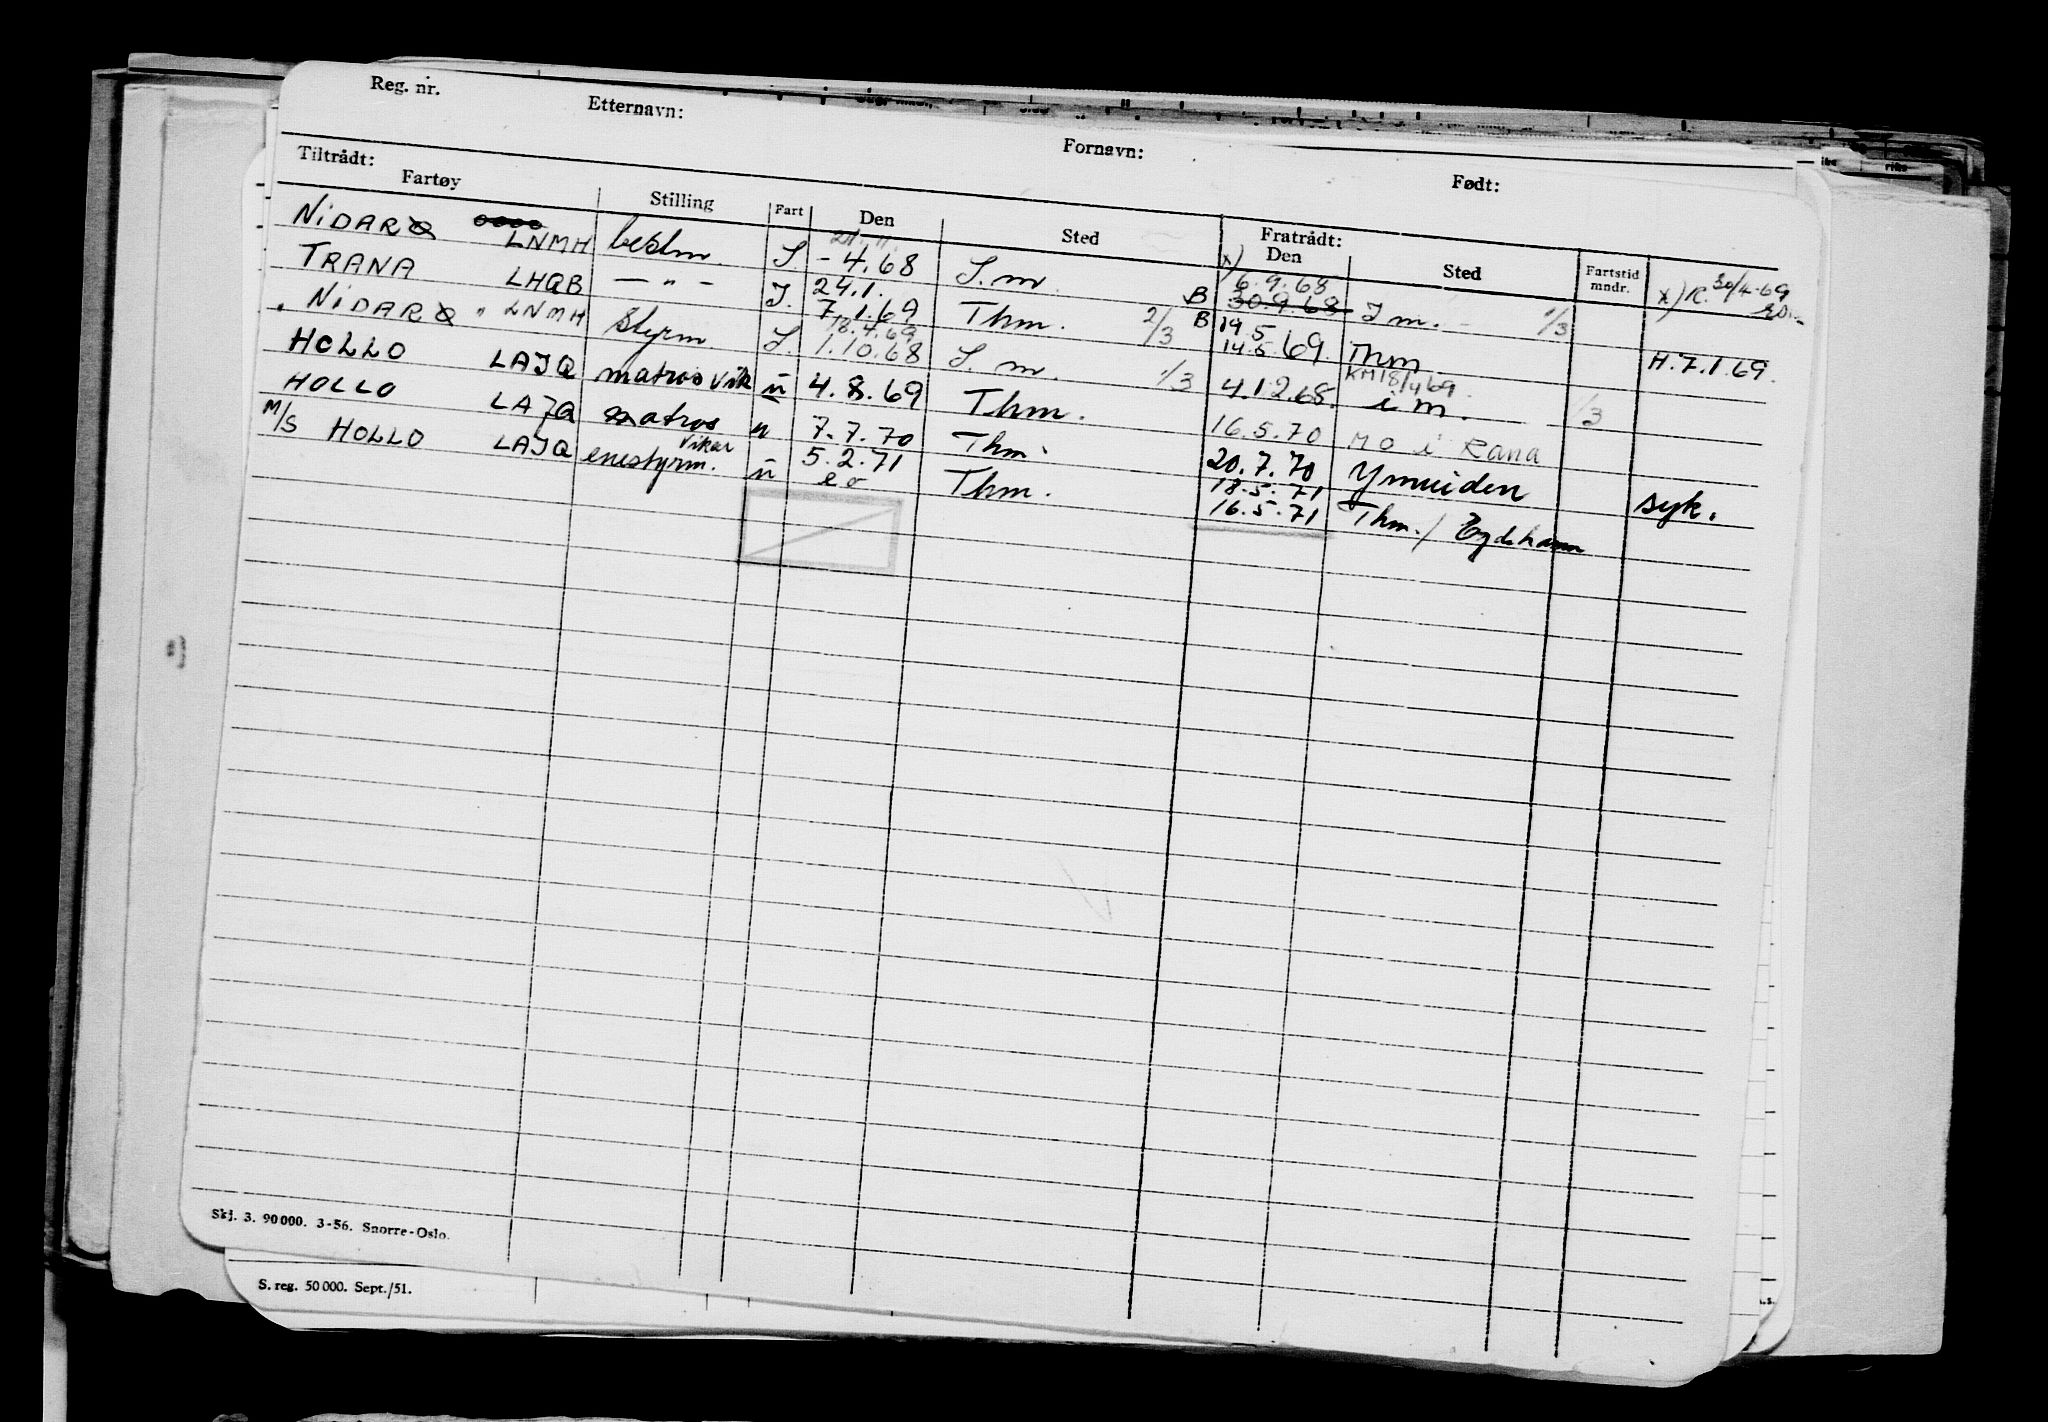 Reg. nr. Etternavn: Fornavn: Født:
Tiltrådt: Fratrådt:
Fartøy Stilling Fart Den Sted Den Sted Fartstid mndr.
NIDARØ LNMH bestm S. - 4.68 S. m. x) 6.9.68 30.9.68 I m. 1/3 x) R. 30/4-69
TRANA LHQB — " - I. 24.1. 7.1.69 Thm. 2/3 B 19.5 14.5.69. Thm H. 7.1.69.
" NIDARØ " LNMH Styrm. S. 18.4.69 1.10.68 S. m. 1/3 4.12.68. KM 18/4 69 i m. 1/3
HOLLO LAJQ matros vik u 4.8.69 Thm. 16.5.70 MO i Rana
HOLLO LAJQ matros u 7.7.70 Thm. 20.7.70 Ymuiden syk.
M/S HOLLO LAJQ enestyrm. vikar u 5.2.71 Thm. 18.5.71 16.5.71 Thm. / Eydehavn
Skj. 3. 90 000. 3-56. Snorre-Oslo.
S. reg. 50 000. Sept./51.